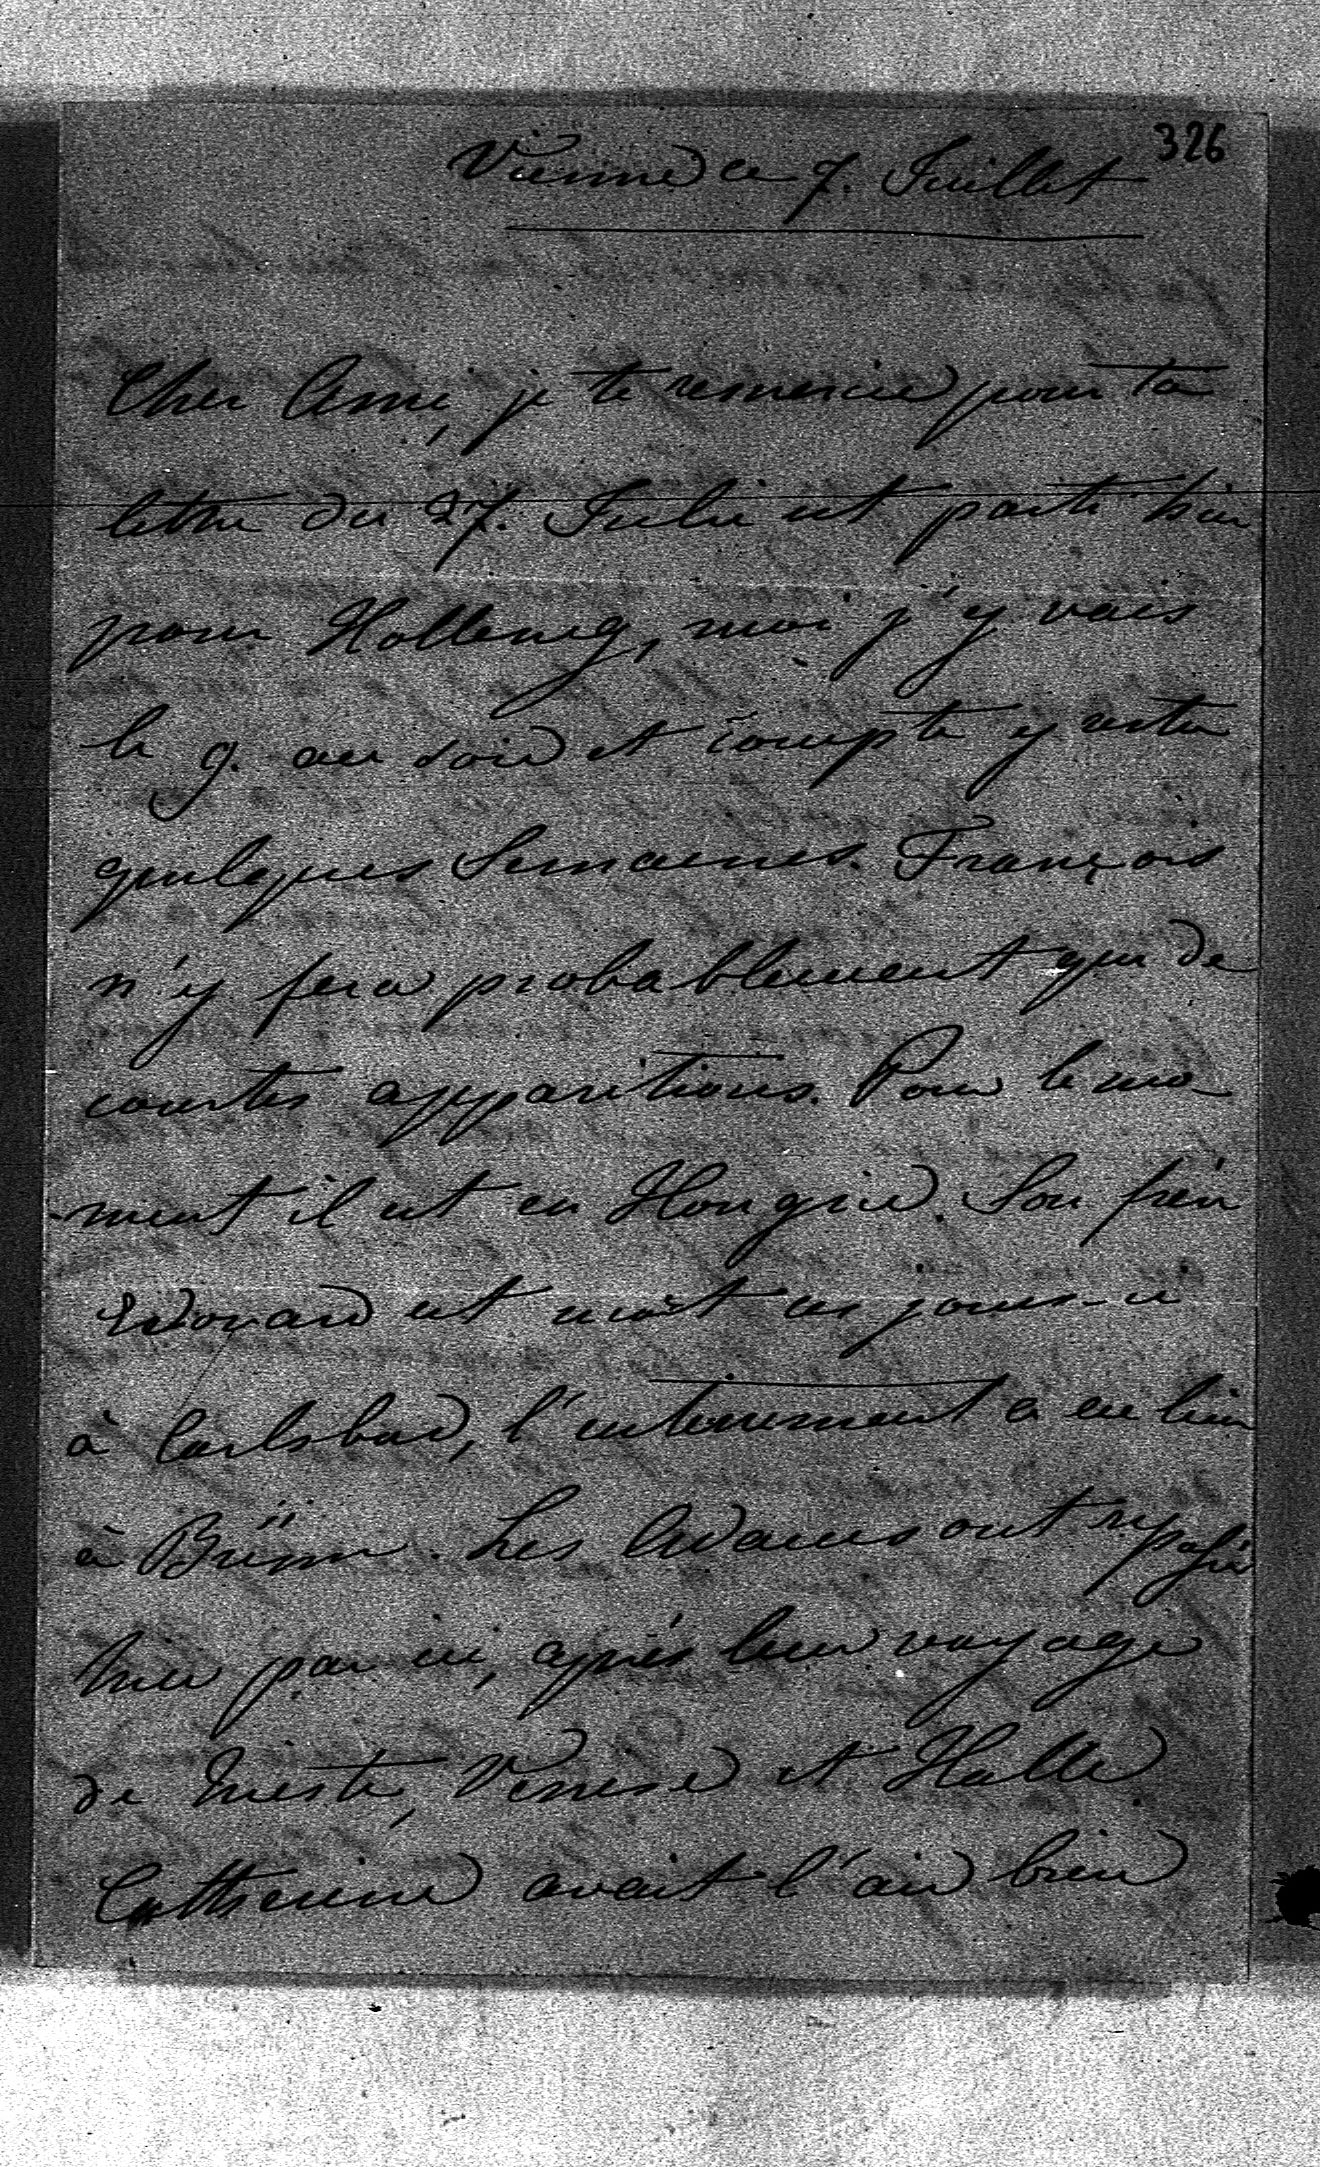 326
Vienne ce 7. Juillet
Cher Ami, je te remercie pour ta
lettre du 27. Julie est parti hier
pour Hollenegg, moi j'y vais
le 9. au soir et compte y rester
quelques Semaines. François
n'y fera probablement que de
courtes apparitions. Pour le mo-
-ment il est en Hongrie. Son frère
Edouard est mort ces jours-ci
à Carlsbad, l'enterrement a eu lieu
à Brünn. Les Adams ont repassé
hier par ici, après leur voyage
de Trieste, Venise et Halle
Catherine avait l'air bien